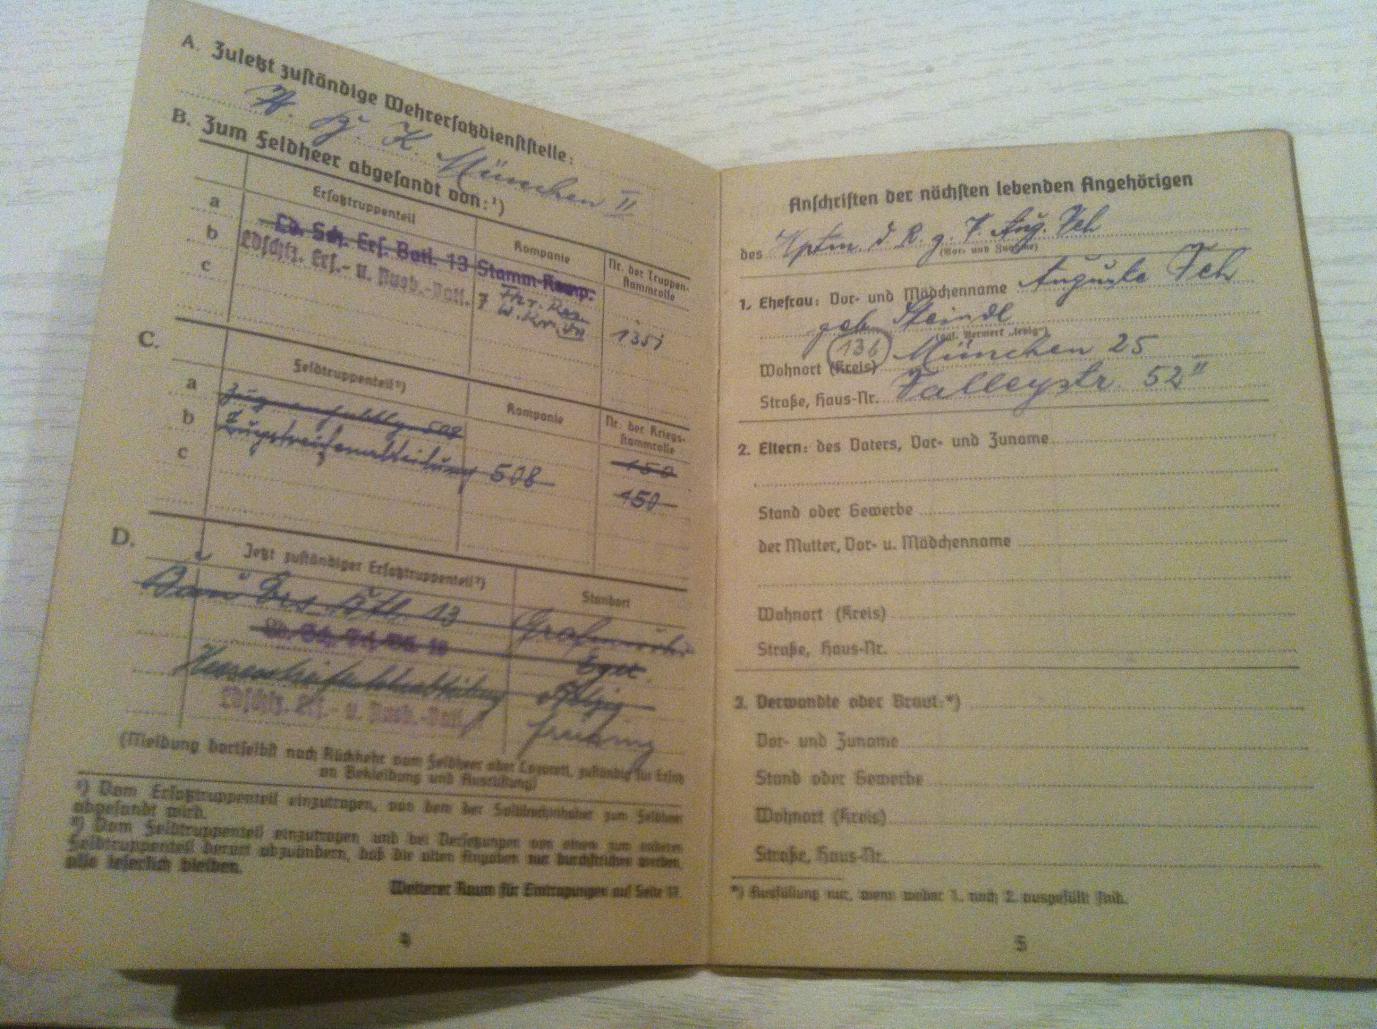 A. Zuletzt zuständige Wehrersatzdienststelle:
K. München II
B. Zum Feldheer abgesandt von:¹)
Ersatztruppenteil Kompanie Nr. der Truppenstammrolle
a Ld. Sch. Ers. Batl. 13 Stamm-Komp.
b Ldschtz. Ers.- u. Ausb.-Batl. 7 1351
c
C. Feldtruppenteil²) Kompanie Nr. der Kriegsstammrolle
a 508 150
b Zugstreifenabteilung 508 150
c
D. Jetzt zuständiger Ersatztruppenteil²) Standort
Bau Ers Btl. 13
Eger
Ldschtz. Ers.- u. Ausb.-Batl.
(Meldung dortselbst nach Rückkehr vom Feldheer oder Lazarett, zuständig für Ersatz
an Bekleidung und Ausrüstung)
¹) Vom Ersatztruppenteil einzutragen, von dem der Soldbuchinhaber zum Feldheer
abgesandt wird.
²) Vom Feldtruppenteil einzutragen und bei Versetzungen von einem zum anderen
Feldtruppenteil derart abzuändern, daß die alten Angaben nur durchstrichen werden,
also leserlich bleiben.
Weiterer Raum für Eintragungen auf Seite 17.
4
Anschriften der nächsten lebenden Angehörigen
des Hptm d. R. z. V. Aug. Feh
(Vor- und Zuname)
1. Ehefrau: Vor- und Mädchenname Auguste Feh
geb. Steindl
(ggf. Vermerk „ledig")
Wohnort (Kreis) (136) München 25
Straße, Haus-Nr. Valleystr. 52 II
2. Eltern: des Vaters, Vor- und Zuname
Stand oder Gewerbe
der Mutter, Vor- u. Mädchenname
Wohnort (Kreis)
Straße, Haus-Nr.
3. Verwandte oder Braut:*)
Vor- und Zuname
Stand oder Gewerbe
Wohnort (Kreis)
Straße, Haus-Nr.
*) Ausfüllung nur, wenn weder 1. noch 2. ausgefüllt sind.
5